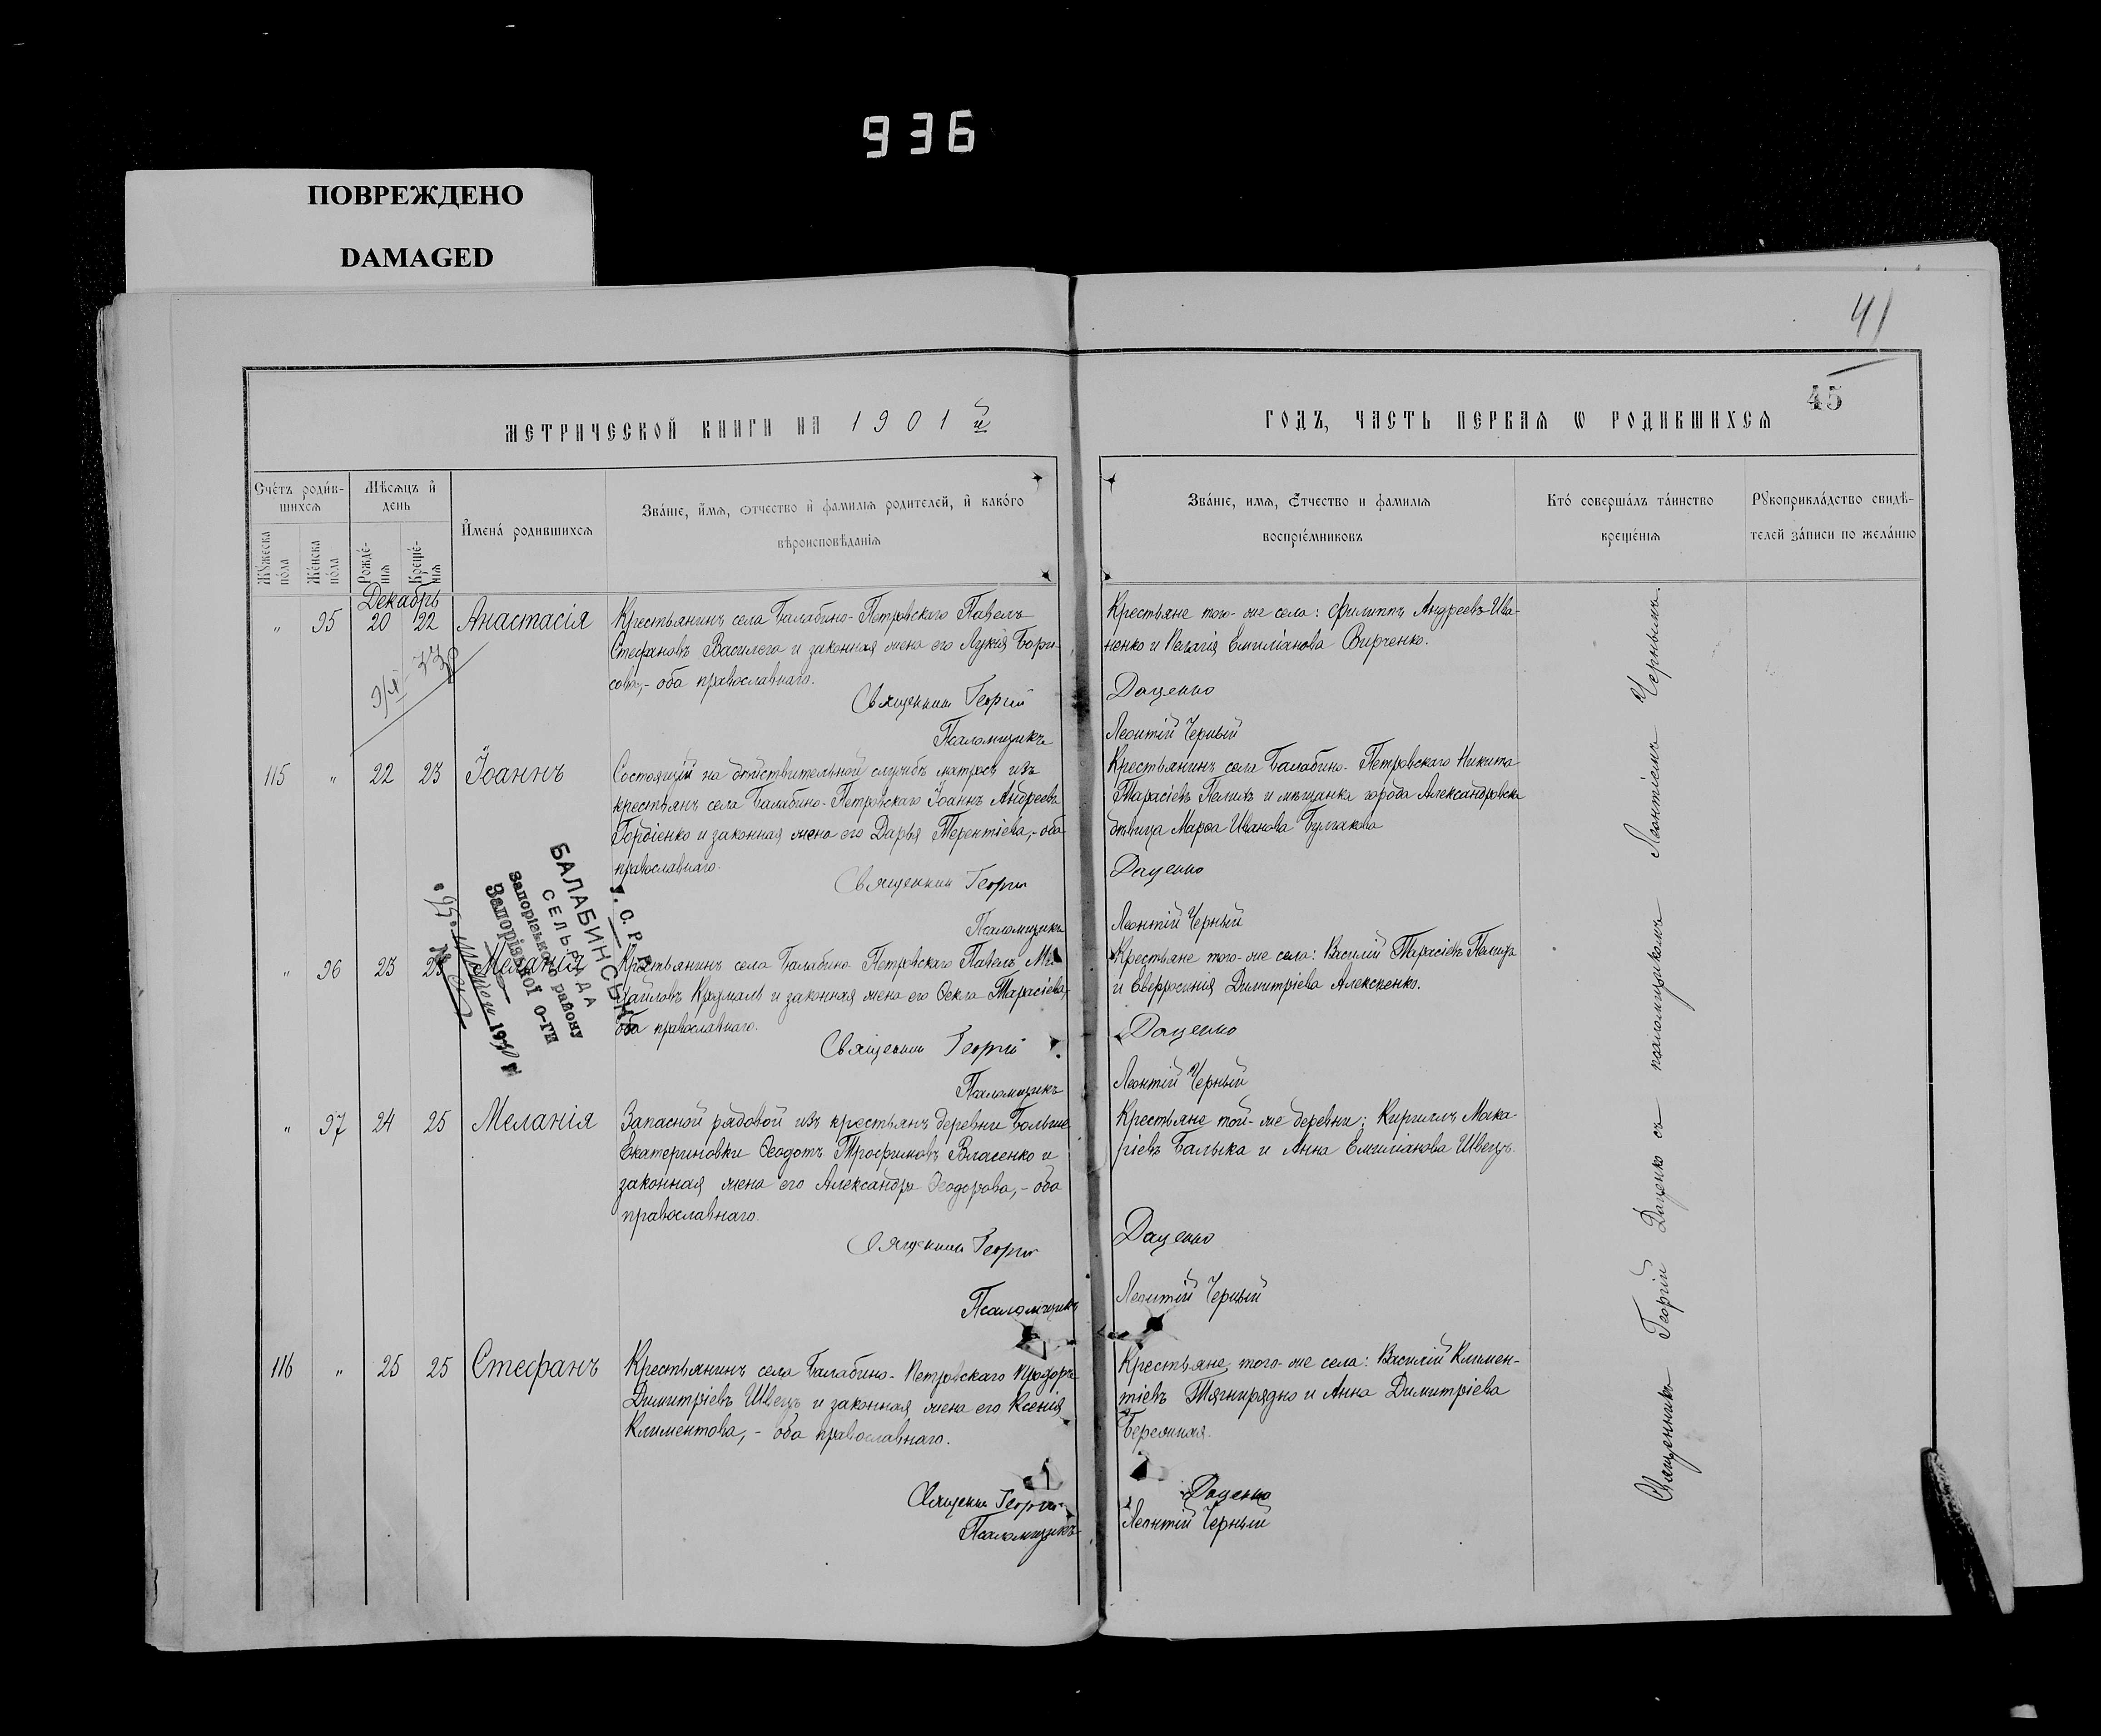 936
ПОВРЕЖДЕНО
DAMAGED
41
45
МЕТРИЧЕСКОЙ КНИГИ НА 1901 й
ГОДЪ, ЧАСТЬ ПЕРВАѦ Ѡ РОДИВШИХСѦ
Счетъ родив-
шихся
Мужеска
пола
Женска
пола
Мѣсяцъ и
день
Рожде-
нія
Креще-
нія
Имена родившихся
Званіе, имя, отчество и фамилія родителей, и какого
вѣроисповѣданія
Званіе, имя, отчество и фамилія
воспріемниковъ
Кто совершалъ таинство
крещенія
Рукоприкладство свидѣ-
телей записи по желанію
Декабрь
" 95 20 22 Анастасія
Крестьянинъ села Балабино-Петровскаго Павелъ
Стефановъ Василега и законная жена его Лукія Бори-
сова,- оба православнаго.
Священникъ Георгій
Псаломщикъ
Крестьяне того-же села: Филиппъ Андреевъ Ива-
ненко и Пелагія Емиліанова Вирченко.
Даценко
Леонтій Черный
115 " 22 23 Іоаннъ
Состоящій на дѣйствительной службѣ матросъ изъ
крестьянъ села Балабино-Петровскаго Іоаннъ Андреевъ
Гордіенко и законная жена его Дарья Терентіева,- оба
православнаго.
Священникъ Георгій
Псаломщикъ
Крестьянинъ села Балабино-Петровскаго Никита
Тарасіевъ и мѣщанка города Александровска
дѣвица Марѳа Иванова Булгакова
Даценко
Леонтій Черный
У. С. Р. Р.
БАЛАБИНСЬКА
СЕЛЬРАДА
Запорізького району
Запорізької О-ГИ
" 96 23 25 Меланія
Крестьянинъ села Балабино Петровскаго Павелъ Ми-
хайловъ и законная жена его Ѳекла Тарасіева,-
оба православнаго.
Священникъ Георгій
Псаломщикъ
Крестьяне того-же села: Василій Тарасіевъ
и Евфросинія Димитріева Алексеенко.
Даценко
Леонтій Черный
" 97 24 25 Меланія
Запасной рядовой изъ крестьянъ деревни Больше
Екатериновки Ѳеодотъ Трофимовъ Власенко и
законная жена его Александра Ѳеодорова,- оба
православнаго.
Священникъ Георгій
Псаломщикъ
Крестьяне той-же деревни: Кириллъ Мака-
ріевъ Балыка и Анна Емиліанова Швецъ.
Даценко
Леонтій Черный
116 " 25 25 Стефанъ
Крестьянинъ села Балабино-Петровскаго
Димитріевъ Швецъ и законная жена его Ксенія
Климентова,- оба православнаго.
Священникъ Георгій
Псаломщикъ
Крестьяне того-же села: Василій Климен-
тіевъ Тягнирядно и Анна Димитріева
Бережная.
Даценко
Леонтій Черный
Священникъ Георгій Даценко съ псаломщикомъ Леонтіемъ Чернымъ.